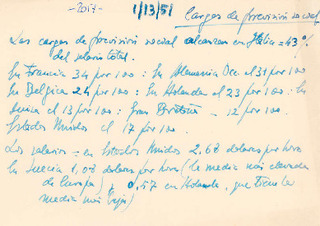 -2017-
1/13/51
Cargas de provisión social
Las cargas de provisión social alcanzan en Italia = 43 %
del salario total.
En Francia 34 por 100 : En Alemania Occ el 31 por 100
En Belgica 24 por 100 : En Holanda el 23 por 100 : En
Suecia el 13 por 100 : Gran Bretaña - 12 por 100.
Estados Unidos el 17 por 100.
Los salarios = en Estados Unidos 2,68 dolares por hora
En Suecia 1,02 dolares por hora (la media más elevada
de Europa) y 0,57 en Holanda, que tiene la
media más baja)